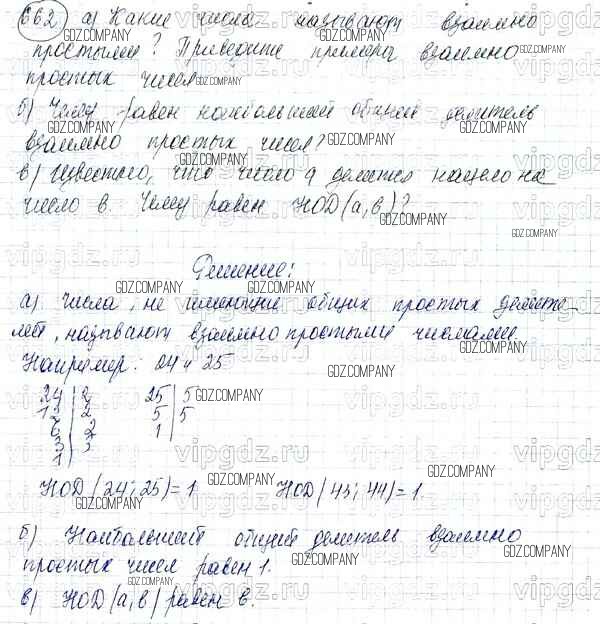 662 а) Какие числа называют взаимно
простыми? Приведите примеры взаимно
простых чисел
б) Чему равен наибольший общий делитель
взаимно простых чисел?
в) Известно, что число а делится нацело на
число в. Чему равен НОД(а,в)?
Решение:
а) Числа, не имеющие общих простых делите-
лей, называют взаимно простыми числами.
Например: 24 и 25
24 | 2   25 | 5
12 | 2   5 | 5
6 | 2   1 |
3 | 3
1 |
НОД(24; 25) = 1   НОД(43; 44) = 1.
б) Наибольший общий делитель взаимно
простых чисел равен 1.
в) НОД(а,в) равен в.
GDZ.COMPANY
vipgdz.ru